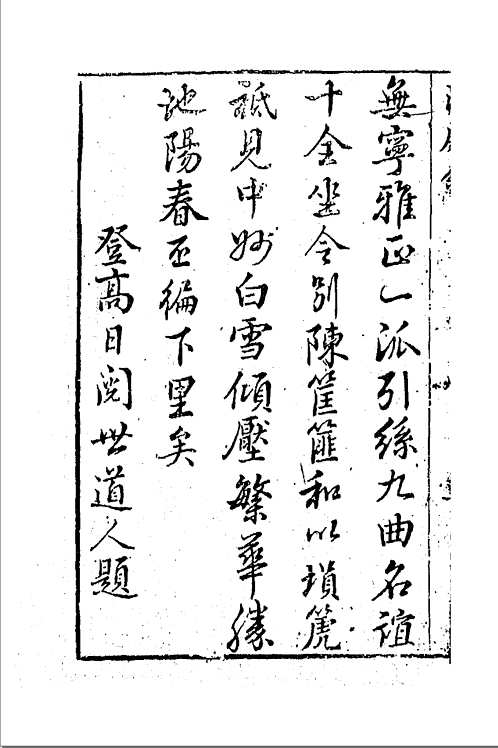 無寧雅正一派引絲九曲名誼
十全坐令別陳筐篚和以塤篪
祗見中妙白雪傾壓繁華勝
地陽春丕徧下里矣
登高日閱世道人題